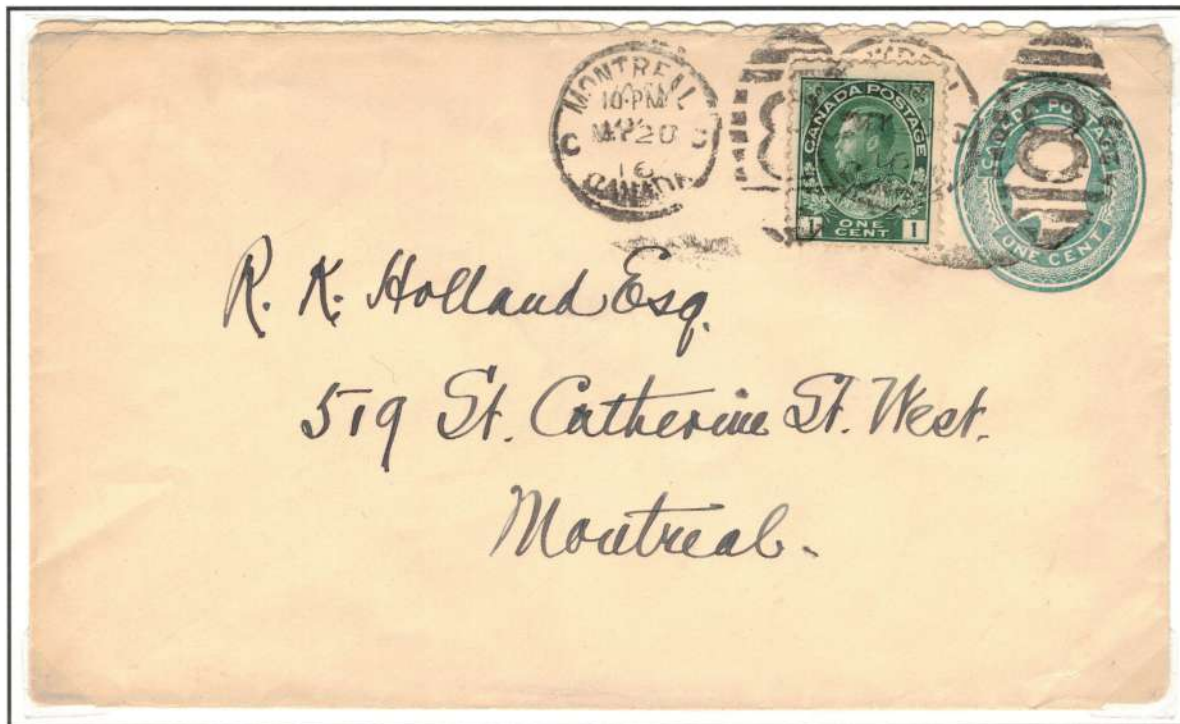 MONTREAL
10·PM
MY 20
16
C C
CANADA
CANADA POSTAGE
1 ONE CENT 1
CANADA POSTAGE
ONE CENT
R. K. Holland Esq.
519 St. Catherine St. West.
Montreal.